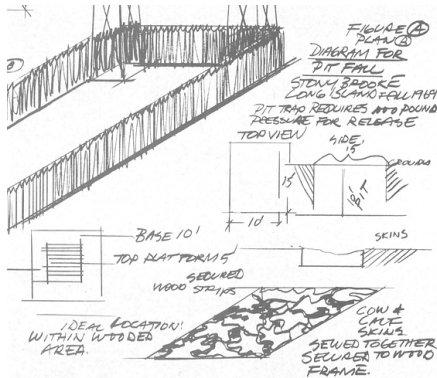 FIGURE A
PLAN A
DIAGRAM FOR
PIT FALL
STONY BROOKE
LONG ISLAND FALL 1969
PIT TRAP REQUIRES 100 POUND
PRESSURE FOR RELEASE
TOP VIEW
SIDE
15
GROUND
15
PIT
10
BASE 10'
TOP PLATFORM 5
SECURED
WOOD STRIPS
SKINS
IDEAL LOCATION:
WITHIN WOODED
AREA.
COW &
CALF
SKINS
SEWED TOGETHER
SECURED TO WOOD
FRAME.